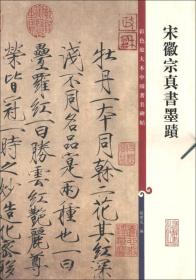 宋徽宗真書墨蹟
彩色放大本中國著名碑帖
牡丹一本同幹二花其紅深
淺不同名品寔兩種也一曰
疊羅紅一曰勝雲紅艷麗尊
榮皆冠一時之妙造化密